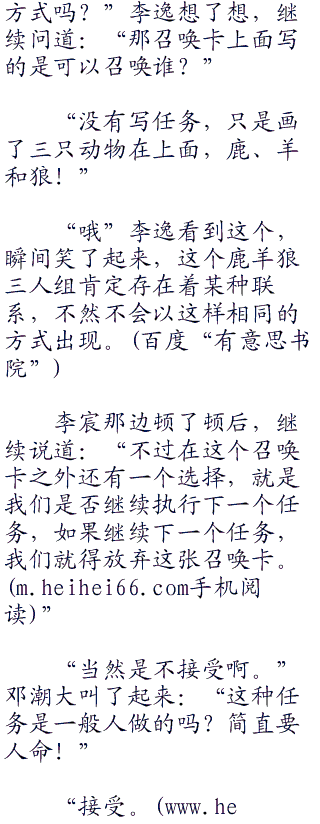 方式吗？”李逸想了想，继
续问道：“那召唤卡上面写
的是可以召唤谁？”
“没有写任务，只是画
了三只动物在上面，鹿、羊
和狼！”
“哦”李逸看到这个，
瞬间笑了起来，这个鹿羊狼
三人组肯定存在着某种联
系，不然不会以这样相同的
方式出现。(百度“有意思书
院”)
李宸那边顿了顿后，继
续说道：“不过在这个召唤
卡之外还有一个选择，就是
我们是否继续执行下一个任
务，如果继续下一个任务，
我们就得放弃这张召唤卡。
(m.heihei66.com手机阅
读)”
“当然是不接受啊。”
邓潮大叫了起来：“这种任
务是一般人做的吗？简直要
人命！”
“接受。(www.he